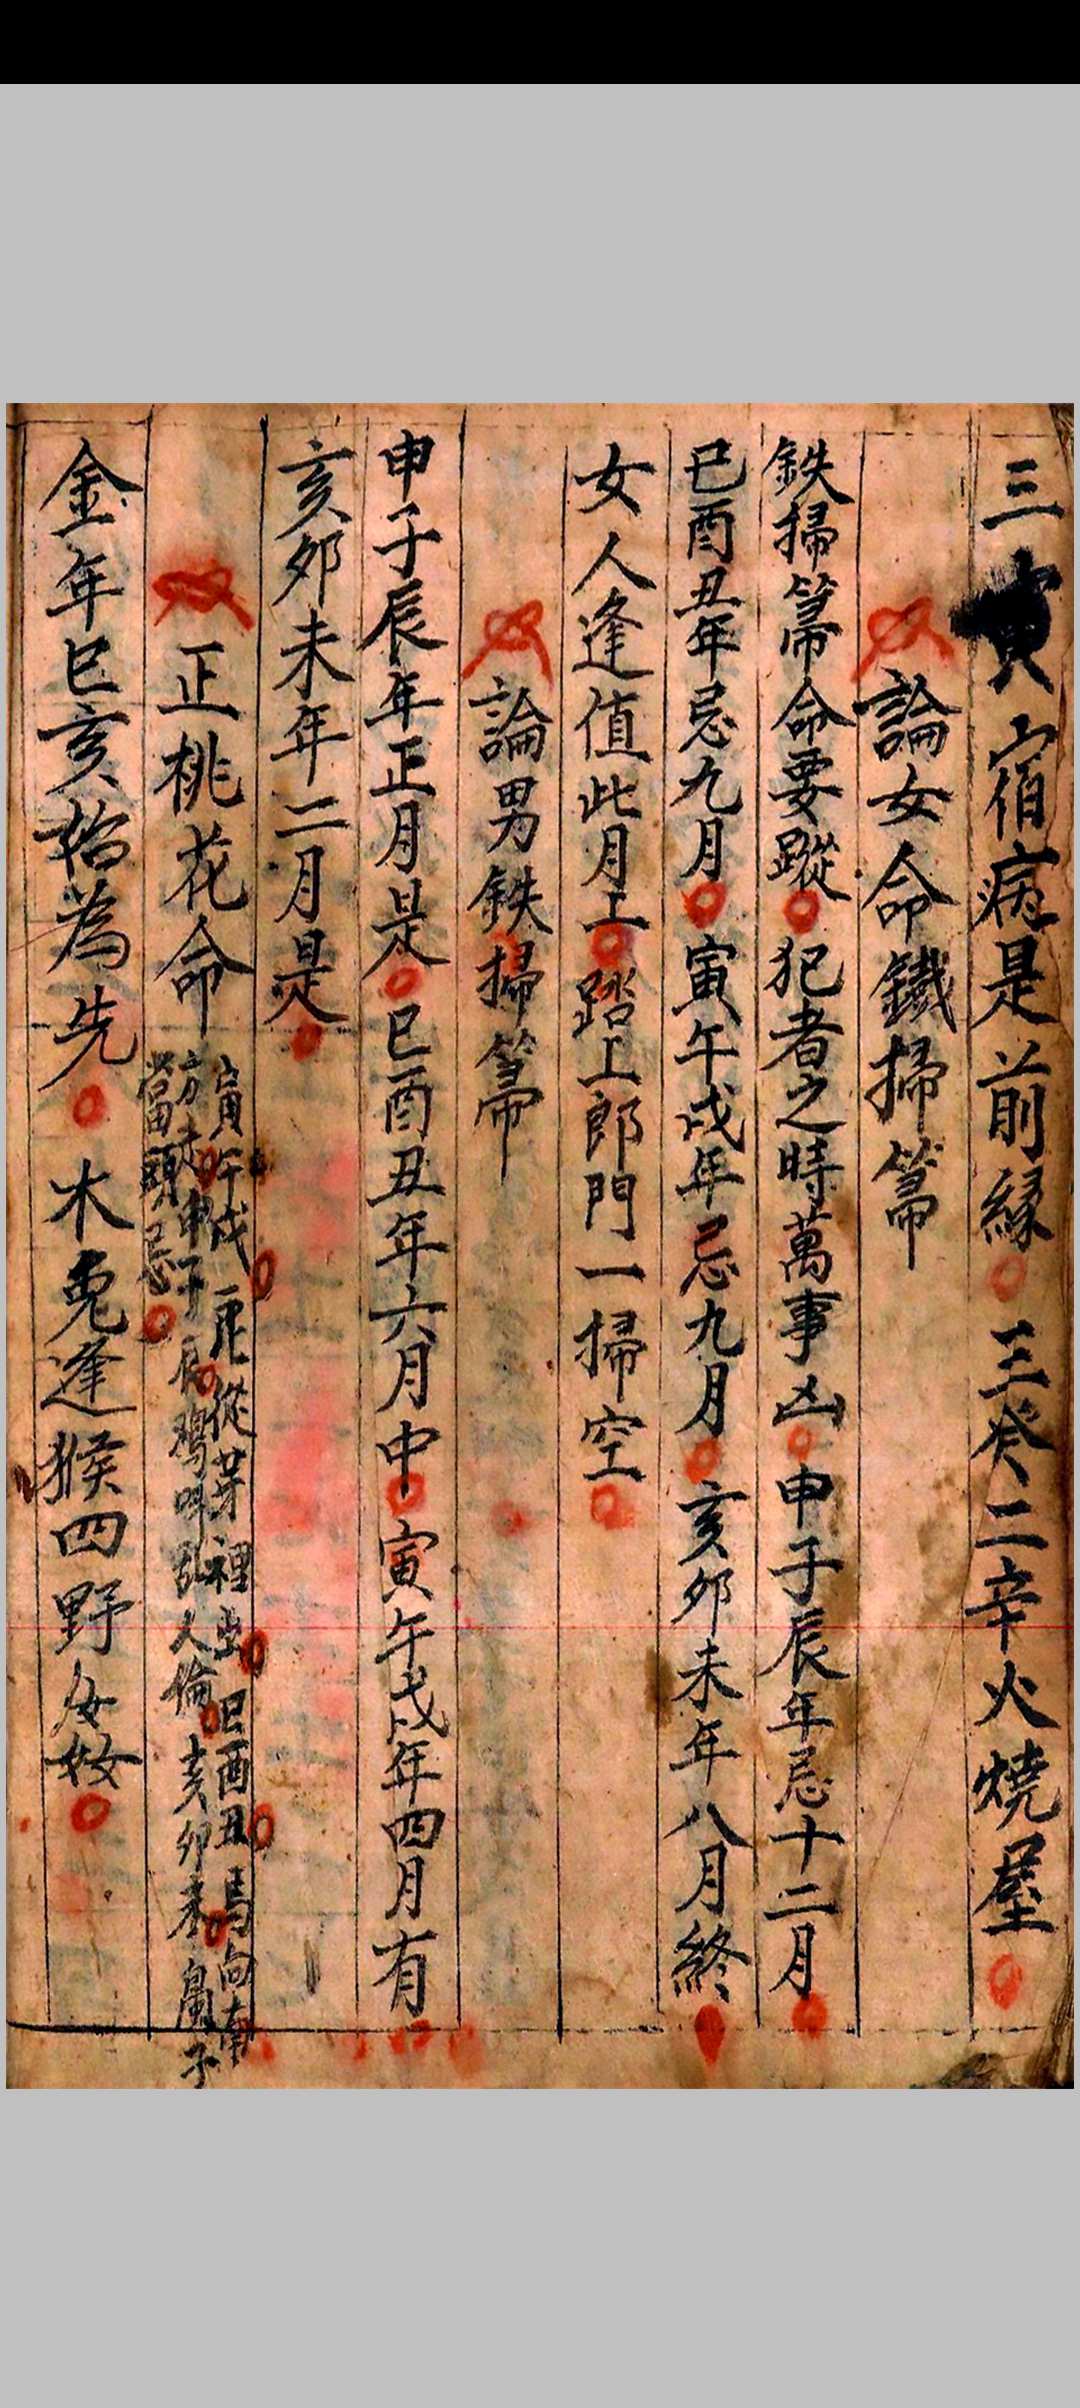 三寅宿病是前縁三癸二辛火燒屋
論女命鐵掃箒
鉄掃箒命要蹤犯者之時萬事凶申子辰年忌十二月
巳酉丑年忌九月寅午戌年忌九月亥夘未年八月終
女人逢值此月上踏上郎門一掃空
論男鉄掃箒
申子辰年正月是巳酉丑年六月中寅午戌年四月有
亥夘未年二月是
正桃花命
寅午戌兎從芽裡出巳酉丑馬向南
方走申子辰鶏呌乱人倫亥卯未鼠子
當頭忌
金年巳亥為先木兎逢猴四野